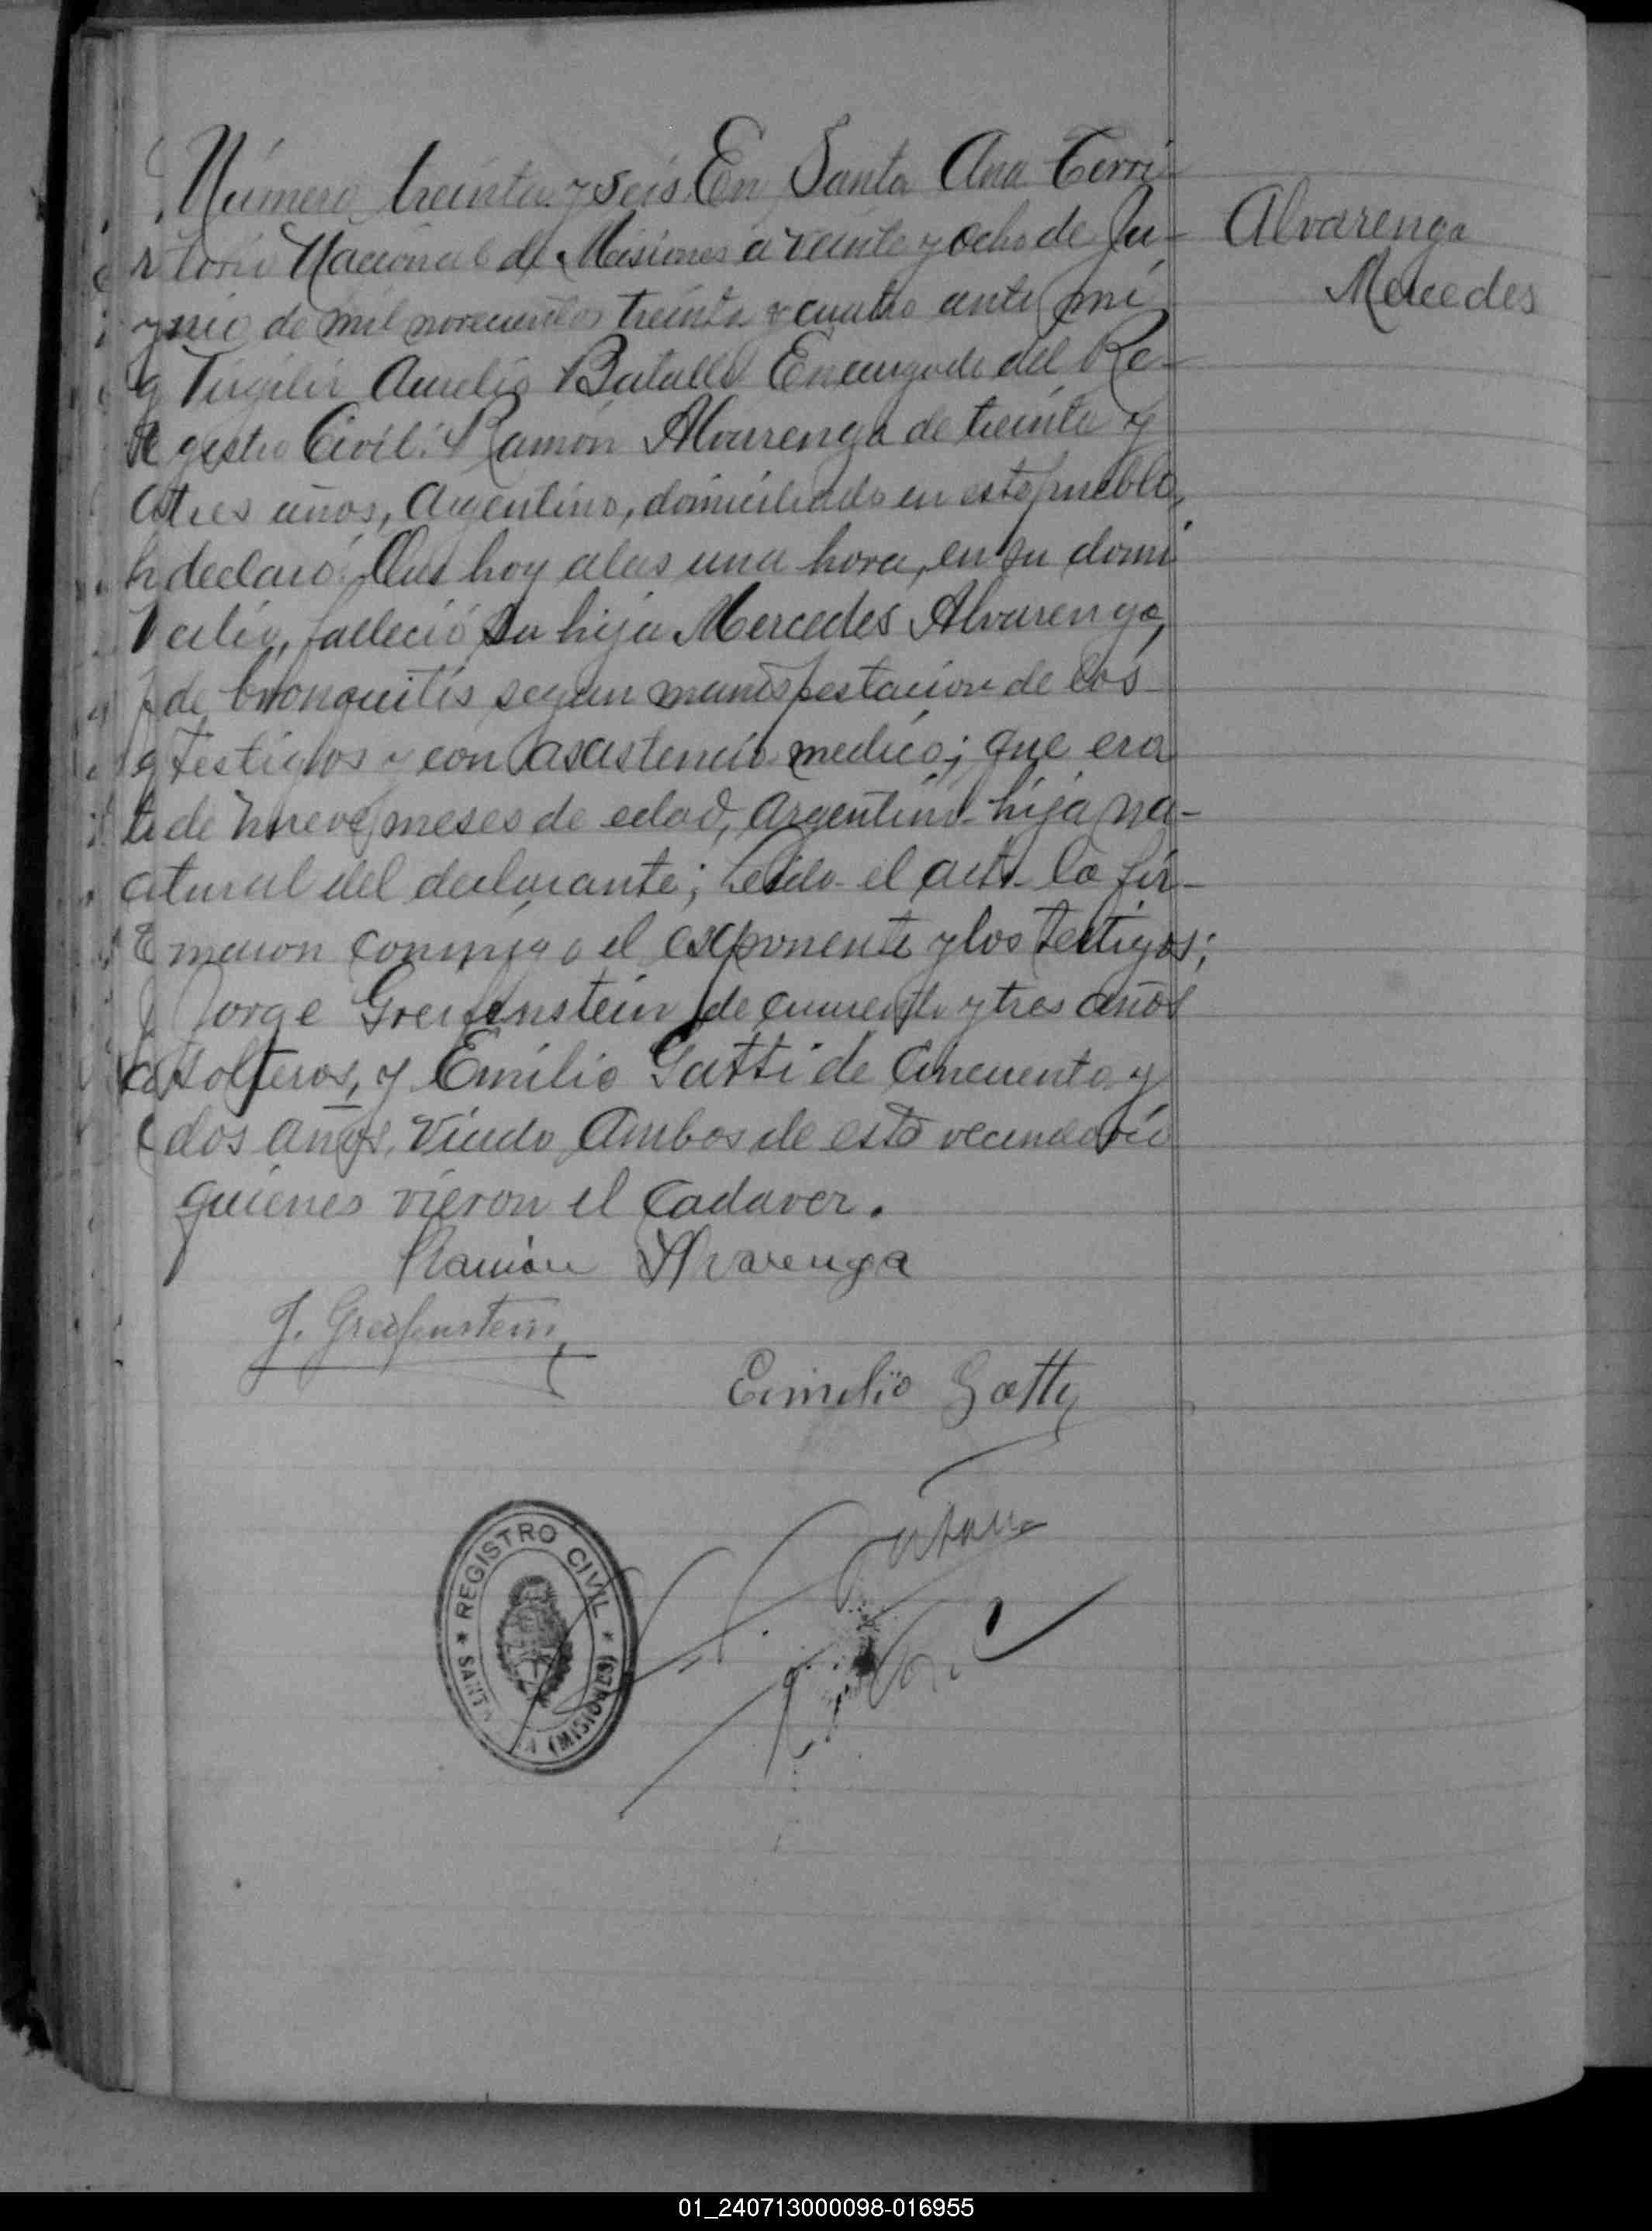 Número treinta y seis. En Santa Ana Terri-
torio Nacional de Misiones a veinte y ocho de Ju-
nio de mil novecientos treinta y cuatro ante mi
Virgilio Aurelio Batalla Encargado del Re-
gistro Civil: Ramón Alvarenga de treinta y
tres años, Argentino, domiciliado en este pueblo,
declaró: Que hoy a las una hora, en su domi
cilio, falleció su hija Mercedes Alvarenga,
de bronquitis segun manifestacion de los
testigos y con asistencia medica; que era
de nueve meses de edad, Argentina hija na-
tural del declarante; Leida el acta la fir-
maron conmigo el exponente y los testigos;
Jorge Greifenstein de cuarenta y tres años
solteros, y Emilio Gatti de cincuenta y
dos años, viudo Ambos de este vecindario
quienes vieron el Cadaver.
Ramón Alvarenga
J. Greifenstein
Emilio Gatti
Alvarenga
Mercedes
REGISTRO CIVIL
SANTA (MISIONES)
01_240713000098-016955